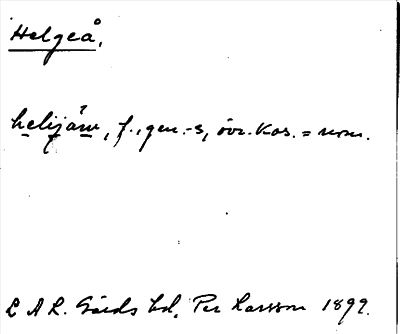 Helgeå.
helijám, f., gen. -s, övr. kas. = nom.
L A L. Gårds bd. Per Larsson 1899.